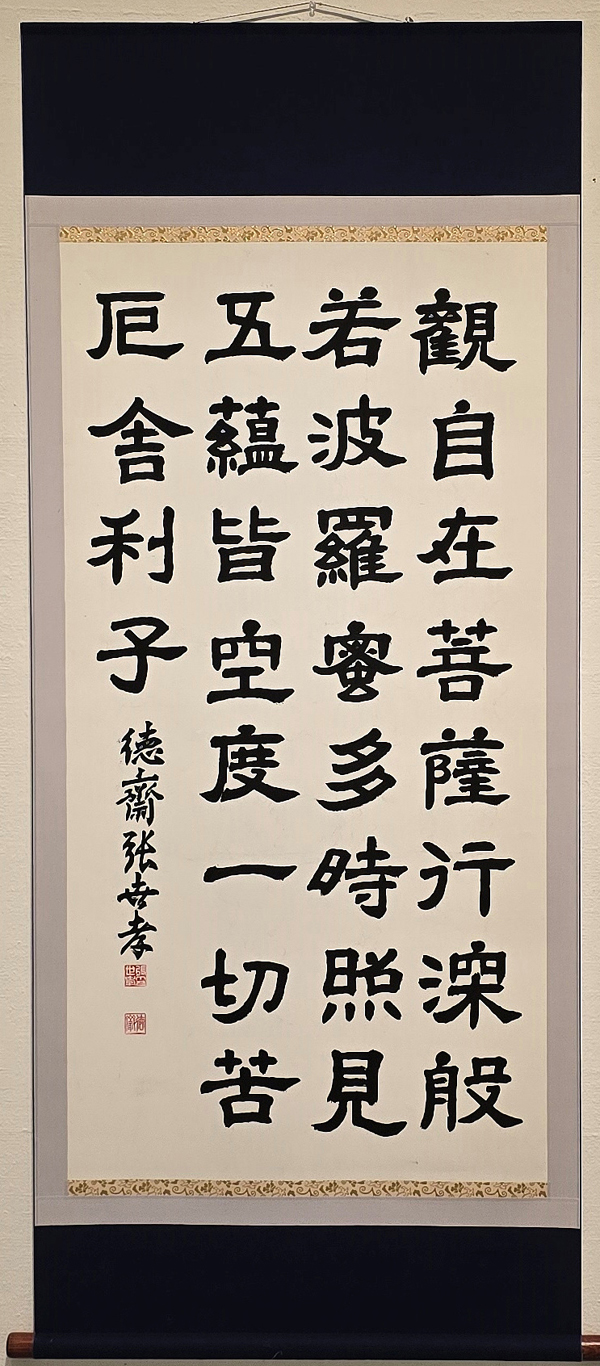 觀自在菩薩行深般
若波羅蜜多時照見
五蘊皆空度一切苦
厄舍利子
德齋張世孝
張世孝印
德齋